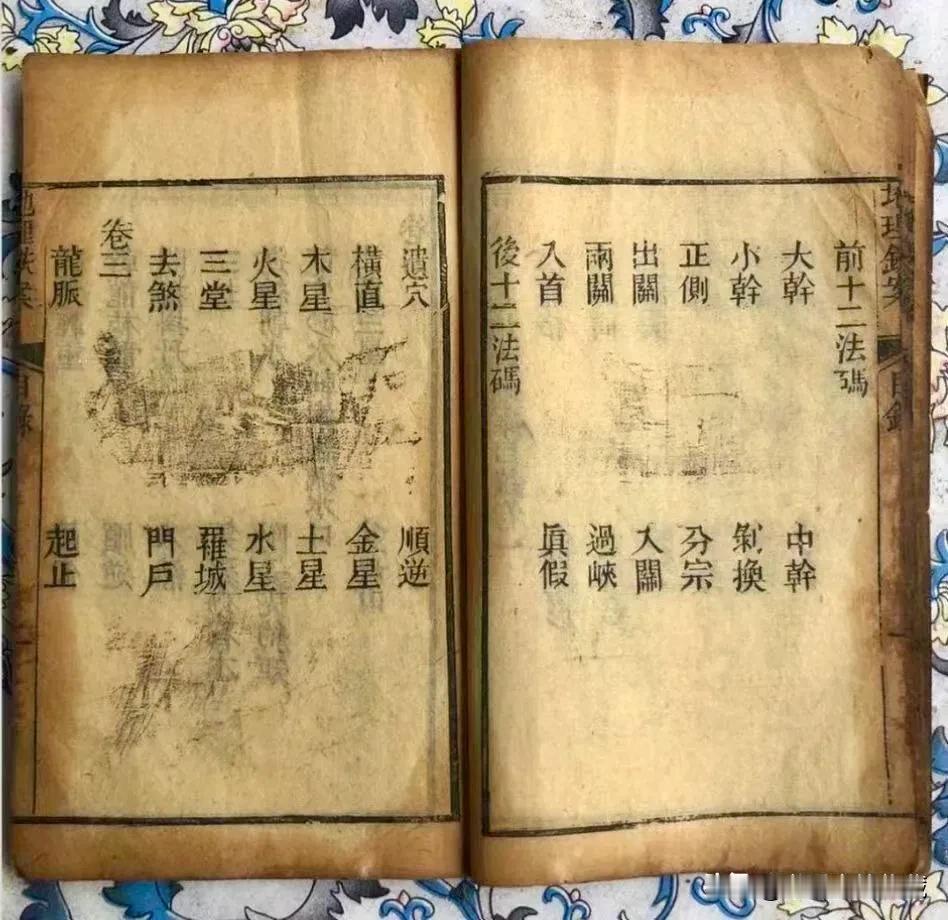 前十二法碼
大幹 中幹
小幹 剝換
正側 分宗
出關 入關
兩關 過峽
入首 真假
後十二法碼
遺穴 順逆
橫直 金星
木星 土星
火星 水星
三堂 羅城
去煞 門戶
卷三
龍脈 起止
目錄